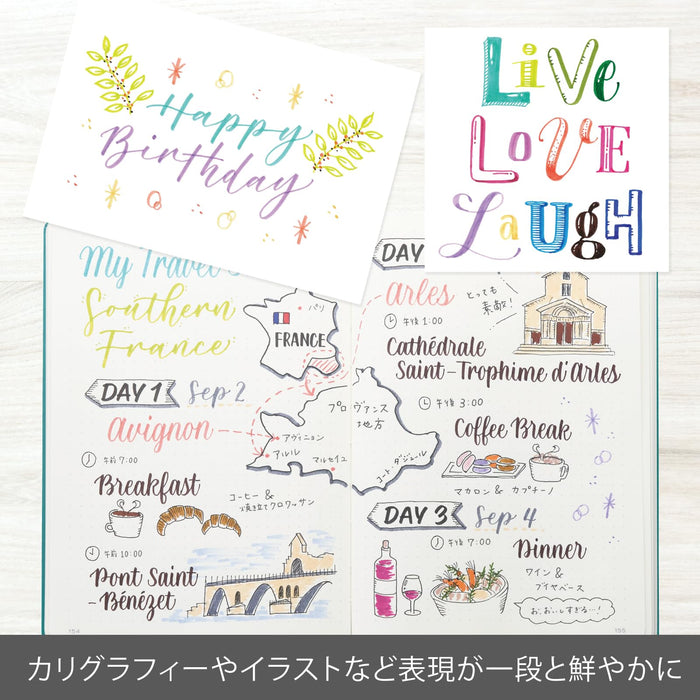 Happy
Birthday
Live
Love
Laugh
My Travel
Southern
France
パリ
FRANCE
DAY 1 Sep 2
avignon
午前 7:00
Breakfast
コーヒー &
焼立てクロワッサン
午前 10:00
Pont Saint
-Bénézet
154
プロヴァンス
地方
アヴィニョン
アルル
マルセイユ
コート・ダジュール
DAY
arles
とっても
素敵!
午後 1:00
Cathédrale
Saint-Trophime d'Arles
午後 3:00
Coffee Break
マカロン & カプチーノ
DAY 3 Sep 4
午後 7:00
Dinner
ワイン &
ブイヤベース
おいしすぎる…!
155
カリグラフィーやイラストなど表現が一段と鮮やかに